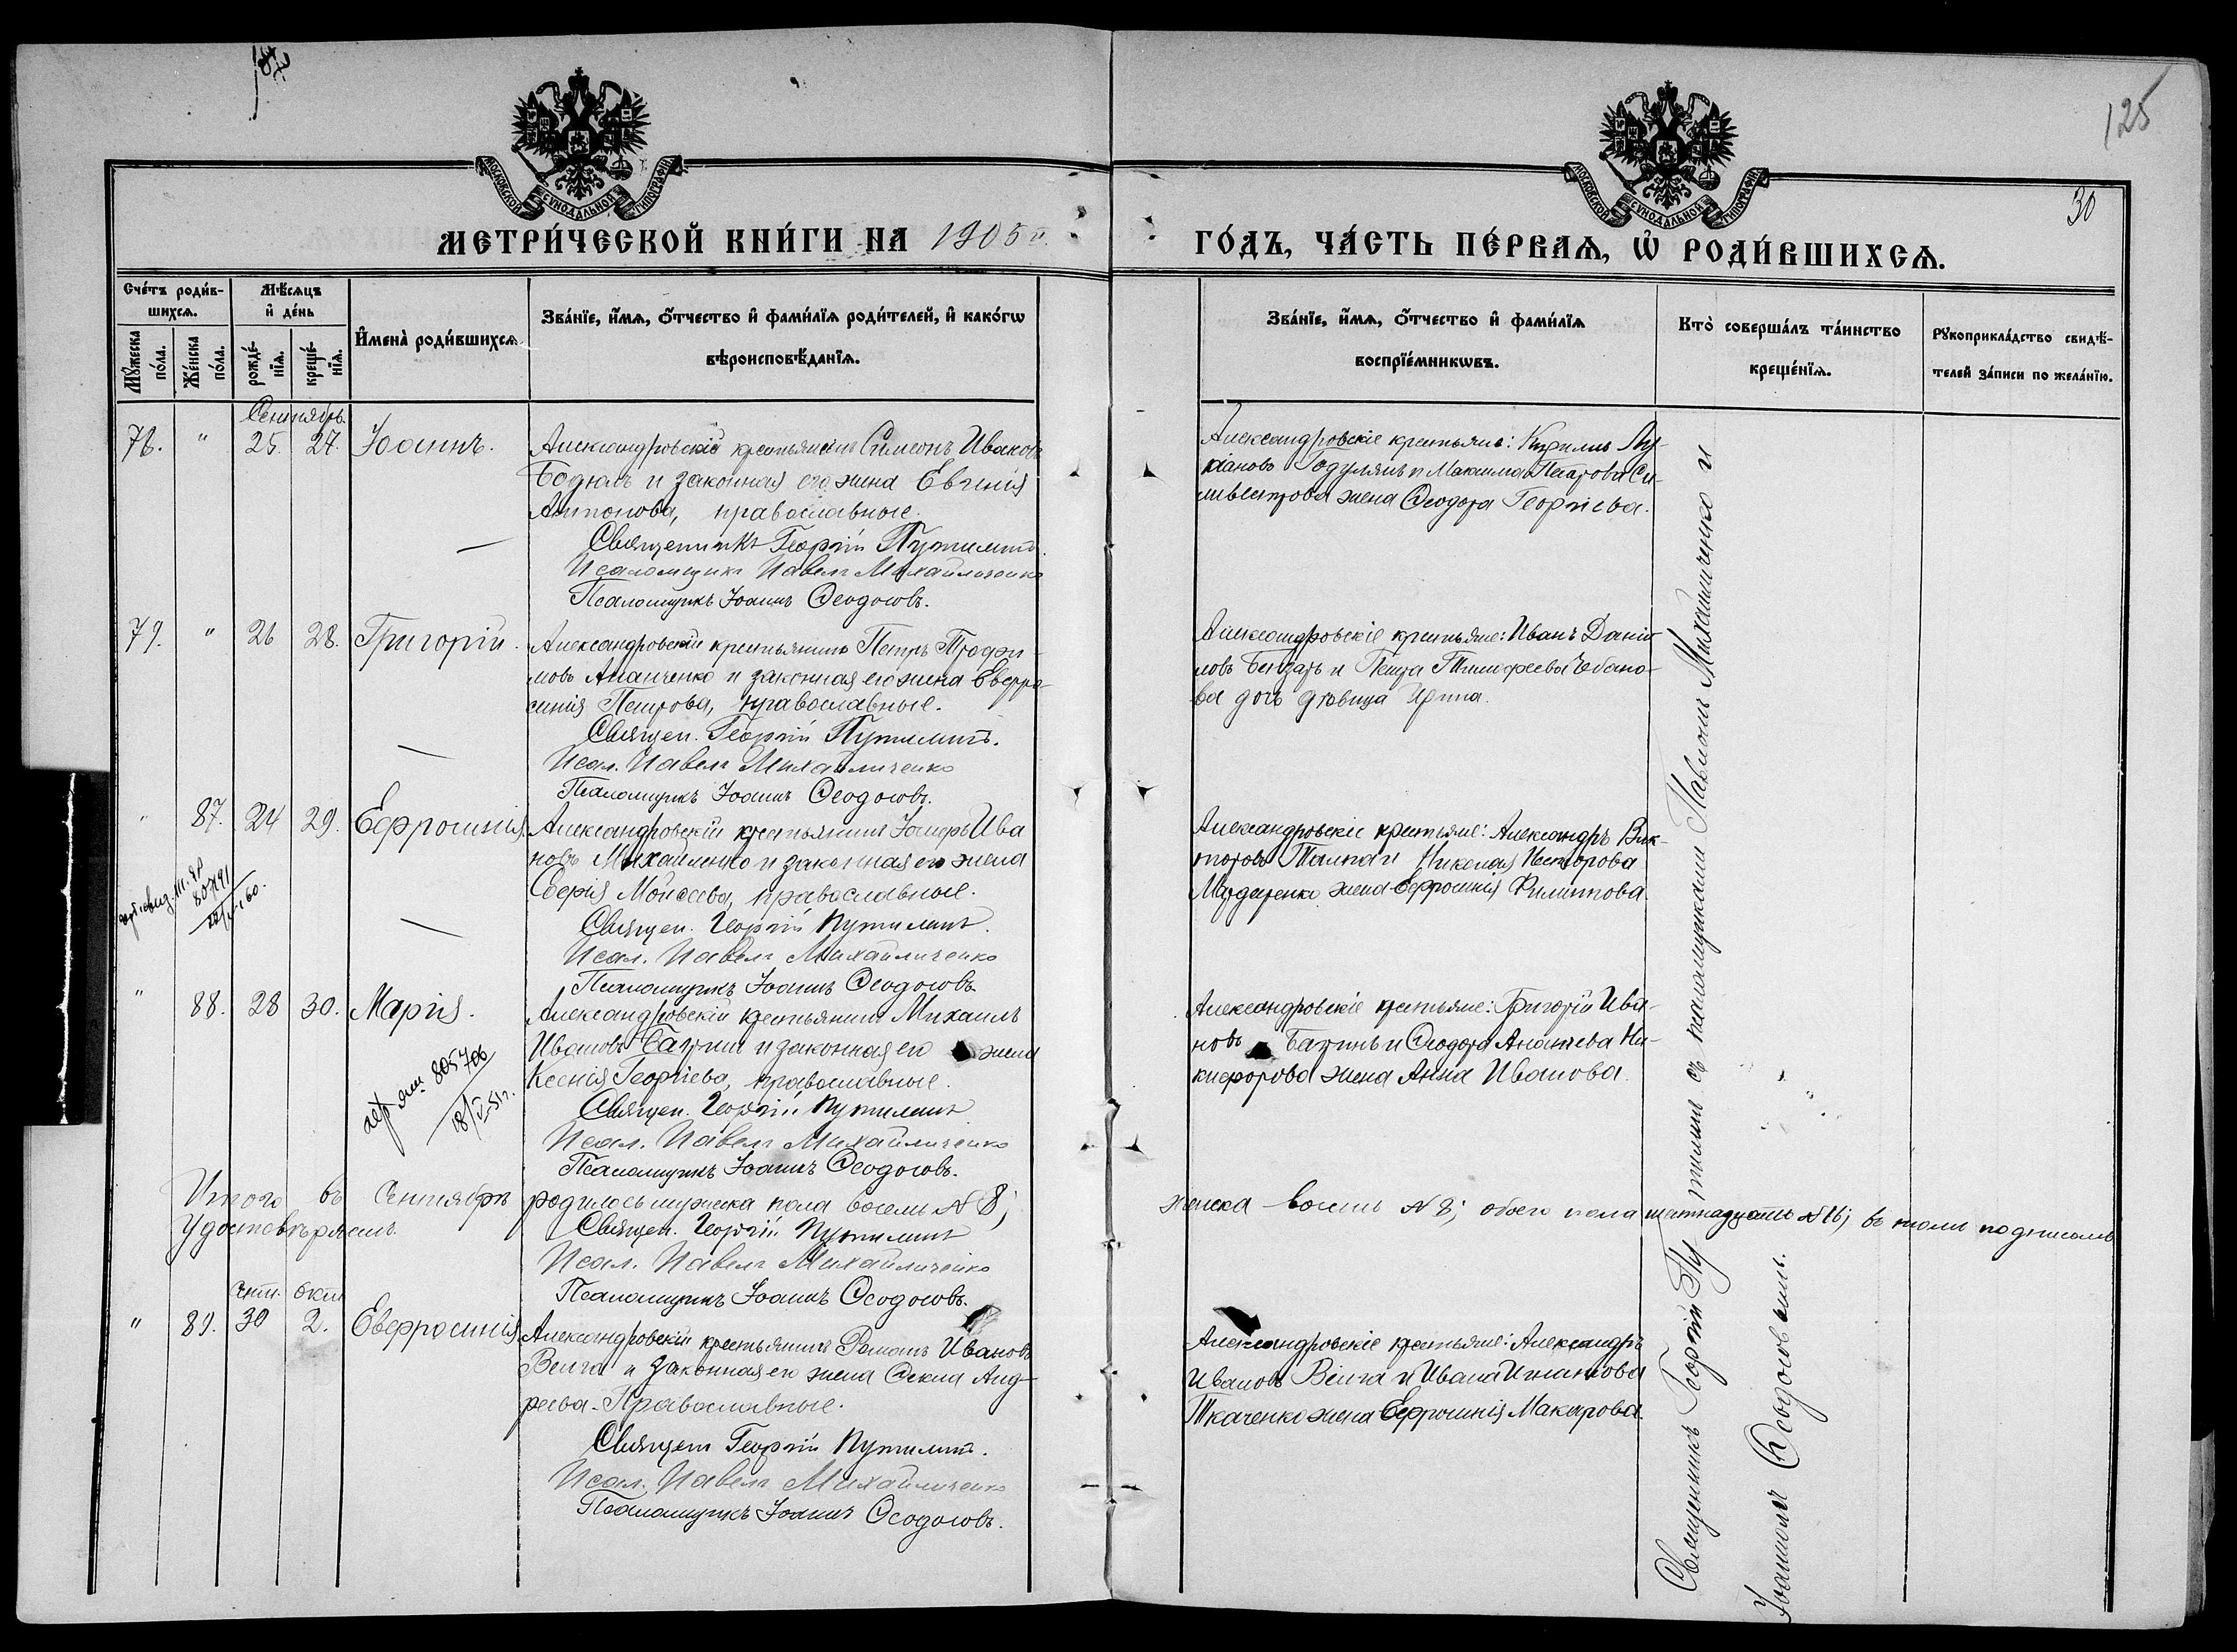 125
30
МОСКОВСКОЙ СУНОДАЛЬНОЙ ТИПОГРАФІИ
МОСКОВСКОЙ СУНОДАЛЬНОЙ ТИПОГРАФІИ
МЕТРИ́ЧЕСКОЙ КНИ́ГИ НА 1905 й.
ГО́ДЪ, ЧА́СТЬ ПЕ́РВАѦ, Ѡ҆ РОДИ́ВШИХСѦ.
Сче́тъ роди́в-
шихсѧ.
Мꙋ́жеска по́ла.
Же́нска по́ла.
Мѣ́сѧцъ
и҆ де́нь
рожде́-
нїѧ.
креще́-
нїѧ.
И҆мена̀ роди́вшихсѧ.
Зва́нїе, и҆́мѧ, ѻ҆́тчество и҆ фами́лїѧ роди́телей, и҆ како́гѡ
вѣроисповѣ́данїѧ.
Зва́нїе, и҆́мѧ, ѻ҆́тчество и҆ фами́лїѧ
воспрїе́мникѡвъ.
Кто̀ соверша́лъ та́инство
креще́нїѧ.
Рꙋкоприкла́дство свидѣ́-
телей за́писи по жела́нїю.
Сентябрь.
78. " 25. 27. Іоаннъ.
Александровскій крестьянинъ Симеонъ Ивановъ
Бодюлъ и законная его жена Евгенія
Антонова, православные.
Священникъ Георгій Путилинъ.
Псаломщикъ Павелъ Михайличенко
Псаломщикъ Іоаннъ Ѳеодосовъ.
Александровскіе крестьяне: Кириллъ Лу-
кіановъ Годулянъ и Максима Петрова Си-
ливестрова жена Ѳеодора Георгіева.
79. " 26 28. Григорій.
Александровскій крестьянинъ Петръ Трофи-
мовъ Ананченко и законная его жена Евфро-
синія Петрова, православные.
Священ. Георгій Путилинъ.
Псал. Павелъ Михайличенко
Псаломщикъ Іоаннъ Ѳеодосовъ.
Александровскіе крестьяне: Иванъ Даніи-
ловъ Бендарь и Петра Тимофеева Чебано-
ва дочь дѣвица Ирина.
" 87. 24 29. Ефросинія.
Александровскій крестьянинъ Іосифъ Ива
новъ Михайленко и законная его жена
Моисеева, православные.
Священ. Георгій Путилинъ.
Псал. Павелъ Михайличенко
Псаломщикъ Іоаннъ Ѳеодосовъ.
Александровскіе крестьяне: Александръ Вик-
торовъ Палпа и Николая Несторова
жена Ефросинія Филиппова.
" 88. 28 30. Марія.
805706
18/V-51г.
Александровскій крестьянинъ Михаилъ
Ивановъ Багринъ и законная его жена
Ксенія Георгіева, православные.
Священ. Георгій Путилинъ
Псал. Павелъ Михайличенко
Псаломщикъ Іоаннъ Ѳеодосовъ.
Александровскіе крестьяне: Григорій Ива-
новъ Багринъ и Ѳеодора Ананіева Ни-
кифорова жена Анна Иванова.
Итого въ Сентябрѣ родилось мужеска пола восемь N 8; женска восемь N 8; обоего пола шестнадцать N 16; въ томъ подписомъ
Удостовѣряемъ.
Священ. Георгій Путилинъ
Псал. Павелъ Михайличенко
Псаломщикъ Іоаннъ Ѳеодосовъ.
Сент. Окт.
" 89. 30 2. Евфросинія.
Александровскій крестьянинъ Романъ Ивановъ
Велга и законная его жена Ѳекла Анд-
реева. Православные.
Священ Георгій Путилинъ.
Псал. Павелъ Михайличенко
Псаломщикъ Іоаннъ Ѳеодосовъ.
Александровскіе крестьяне: Александръ
Ивановъ Велга и Ивана Игнатова
Ткаченко жена Ефросинія Макарова.
Священникъ Георгій Путилинъ съ псаломщиками Павломъ Михайличенко и
Іоанномъ Ѳеодосовымъ.